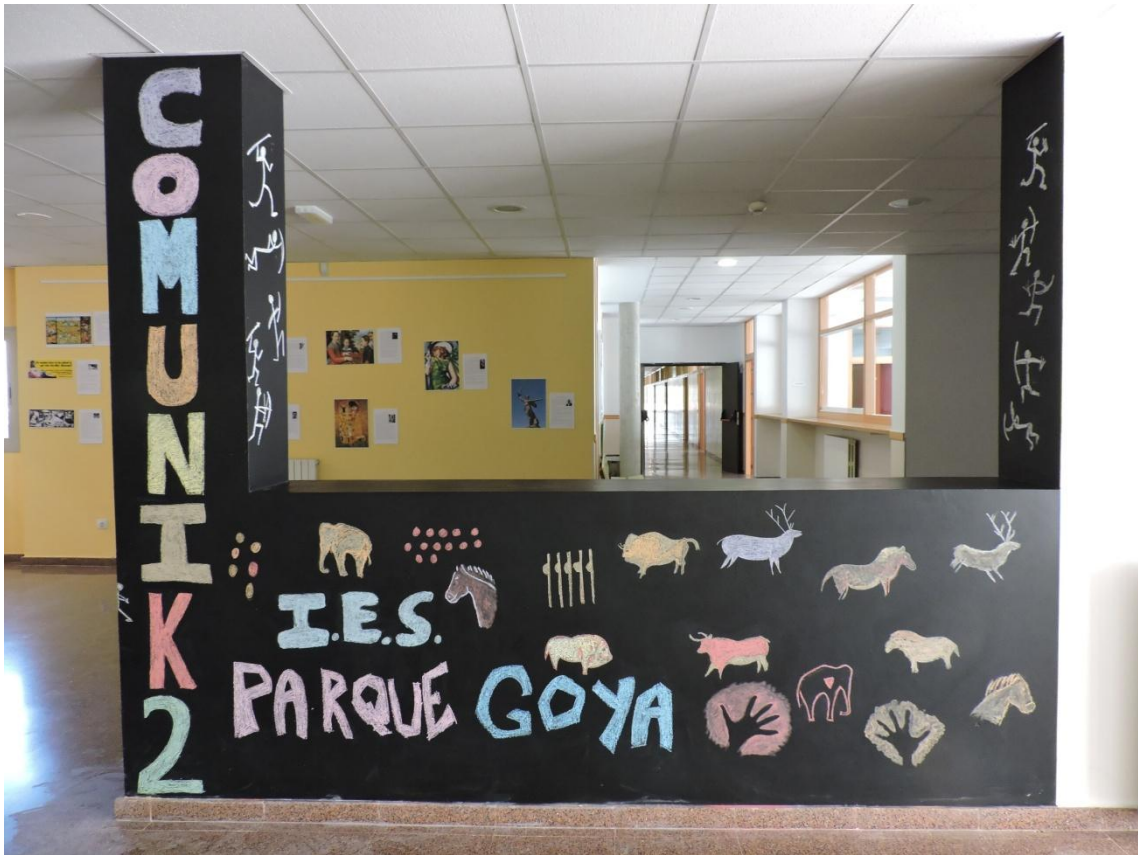 COMUNIK2
I.E.S.
PARQUE GOYA